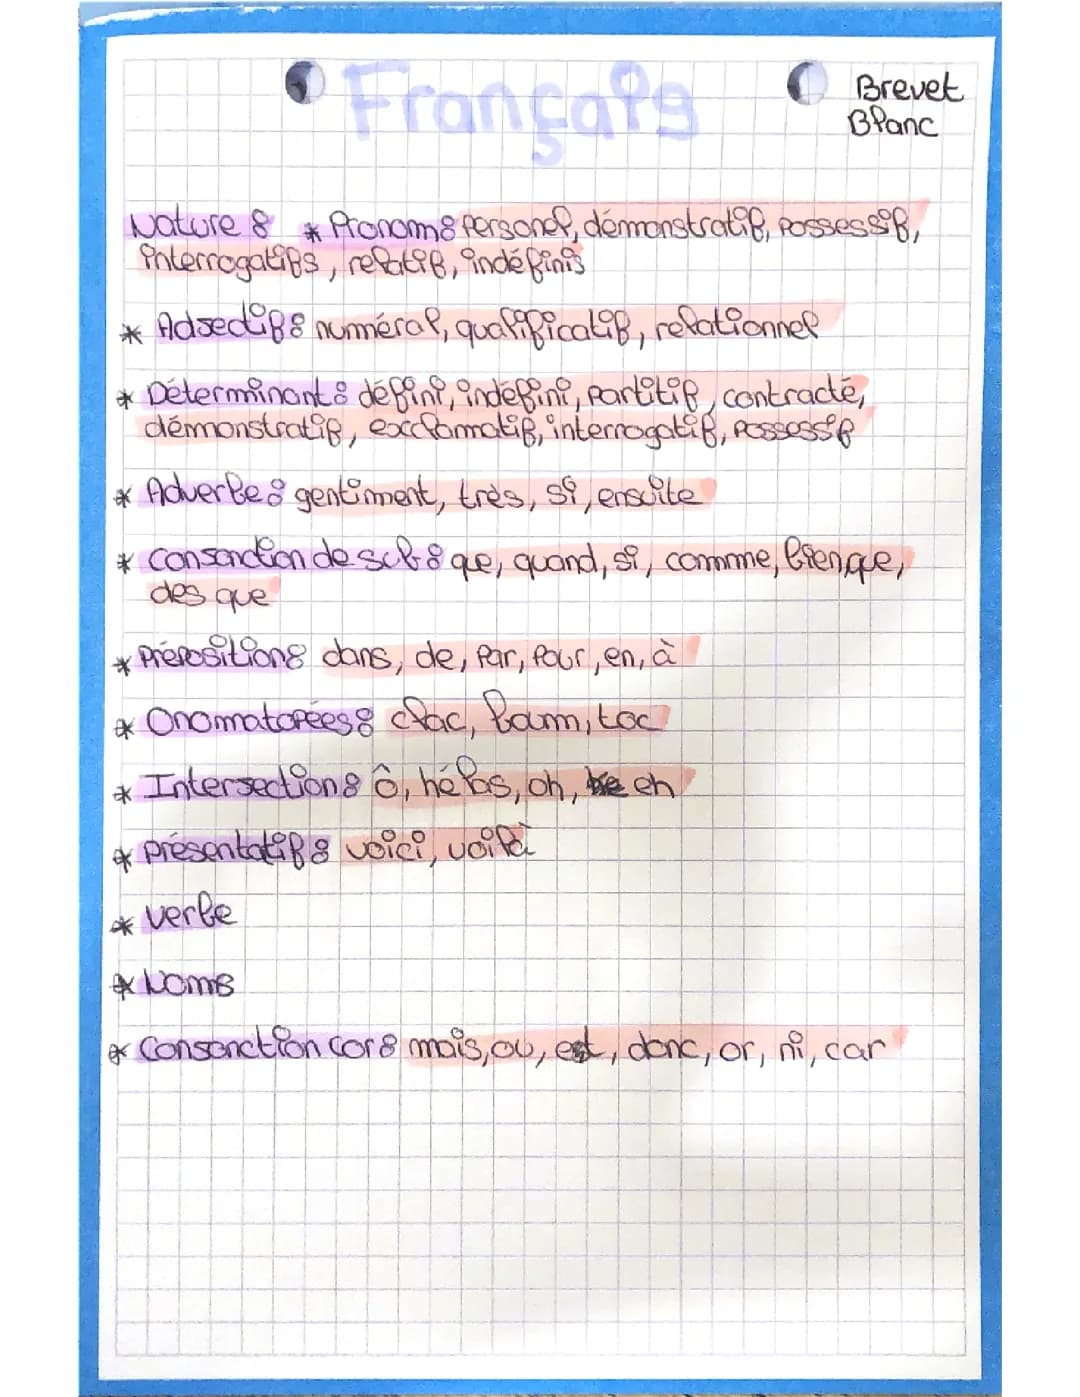 Français
Brevet
Blanc
Nature : * Pronom : Personel, démonstratif, Possessif,
interrogatifs, relatif, indéfinis
* Adjectif : numéral, qualificatif, relationnel
* Déterminant : défini, indéfini, partitif, contracté,
démonstratif, exclammatif, interrogatif, Possessif
* Adverbe : gentiment, très, si, ensuite
* Conjonction de sub : que, quand, si, comme, bien que,
des que
* Préposition : dans, de, Par, Pour, en, à
* Onomatopées : clac, bam, toc
* Interjection : ô, hélas, oh, eh
* présentatif : voici, voilà
* verbe
* Noms
* Conjonction cor : mais, ou, est, donc, or, ni, car